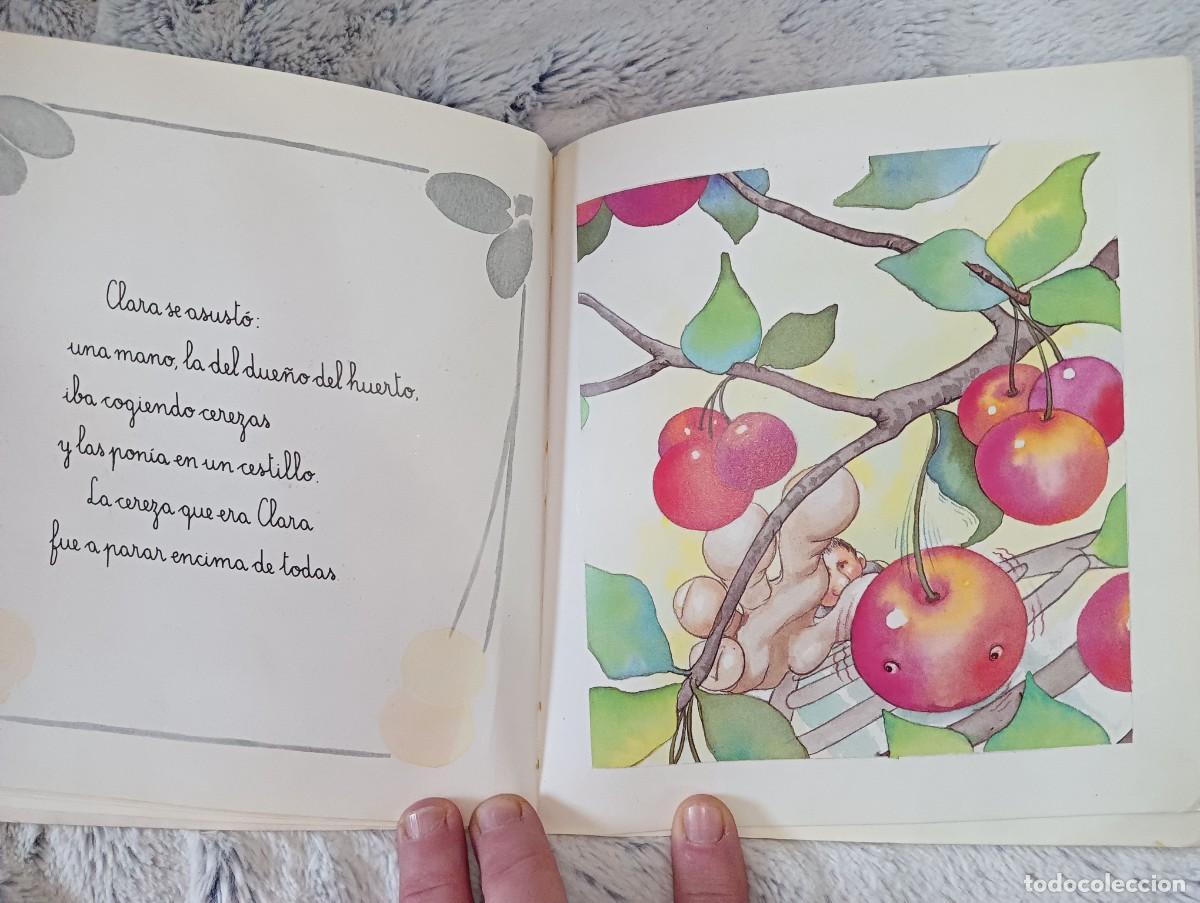 Clara se asustó:
una mano, la del dueño del huerto,
iba cogiendo cerezas
y las ponía en un cestillo.
La cereza que era Clara
fue a parar encima de todas.
todocoleccion